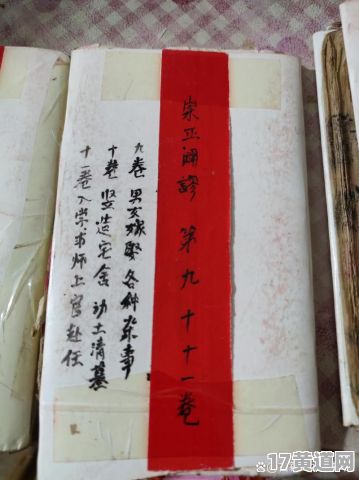 崇正闢謬 第九 十 十一卷
九卷 男女嫁娶各种杂事
十卷 竖造宅舍 动土清墓
十一卷入学求师上官赴任
17黄道网